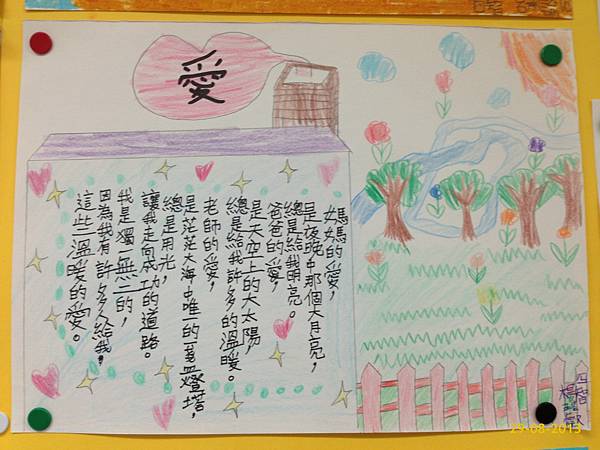 愛
媽媽的愛，
是夜晚中那個大月亮，
總是給我明亮。
爸爸的愛，
是天空上的大太陽，
總是給我許多的溫暖。
老師的愛，
是茫茫大海中唯一的
燈塔，
總是用光，
讓我走向成功的道路。
我是獨一無二的，
因為我有許多人給我，
這些溫暖的愛。
四智
楊
29-08-2015